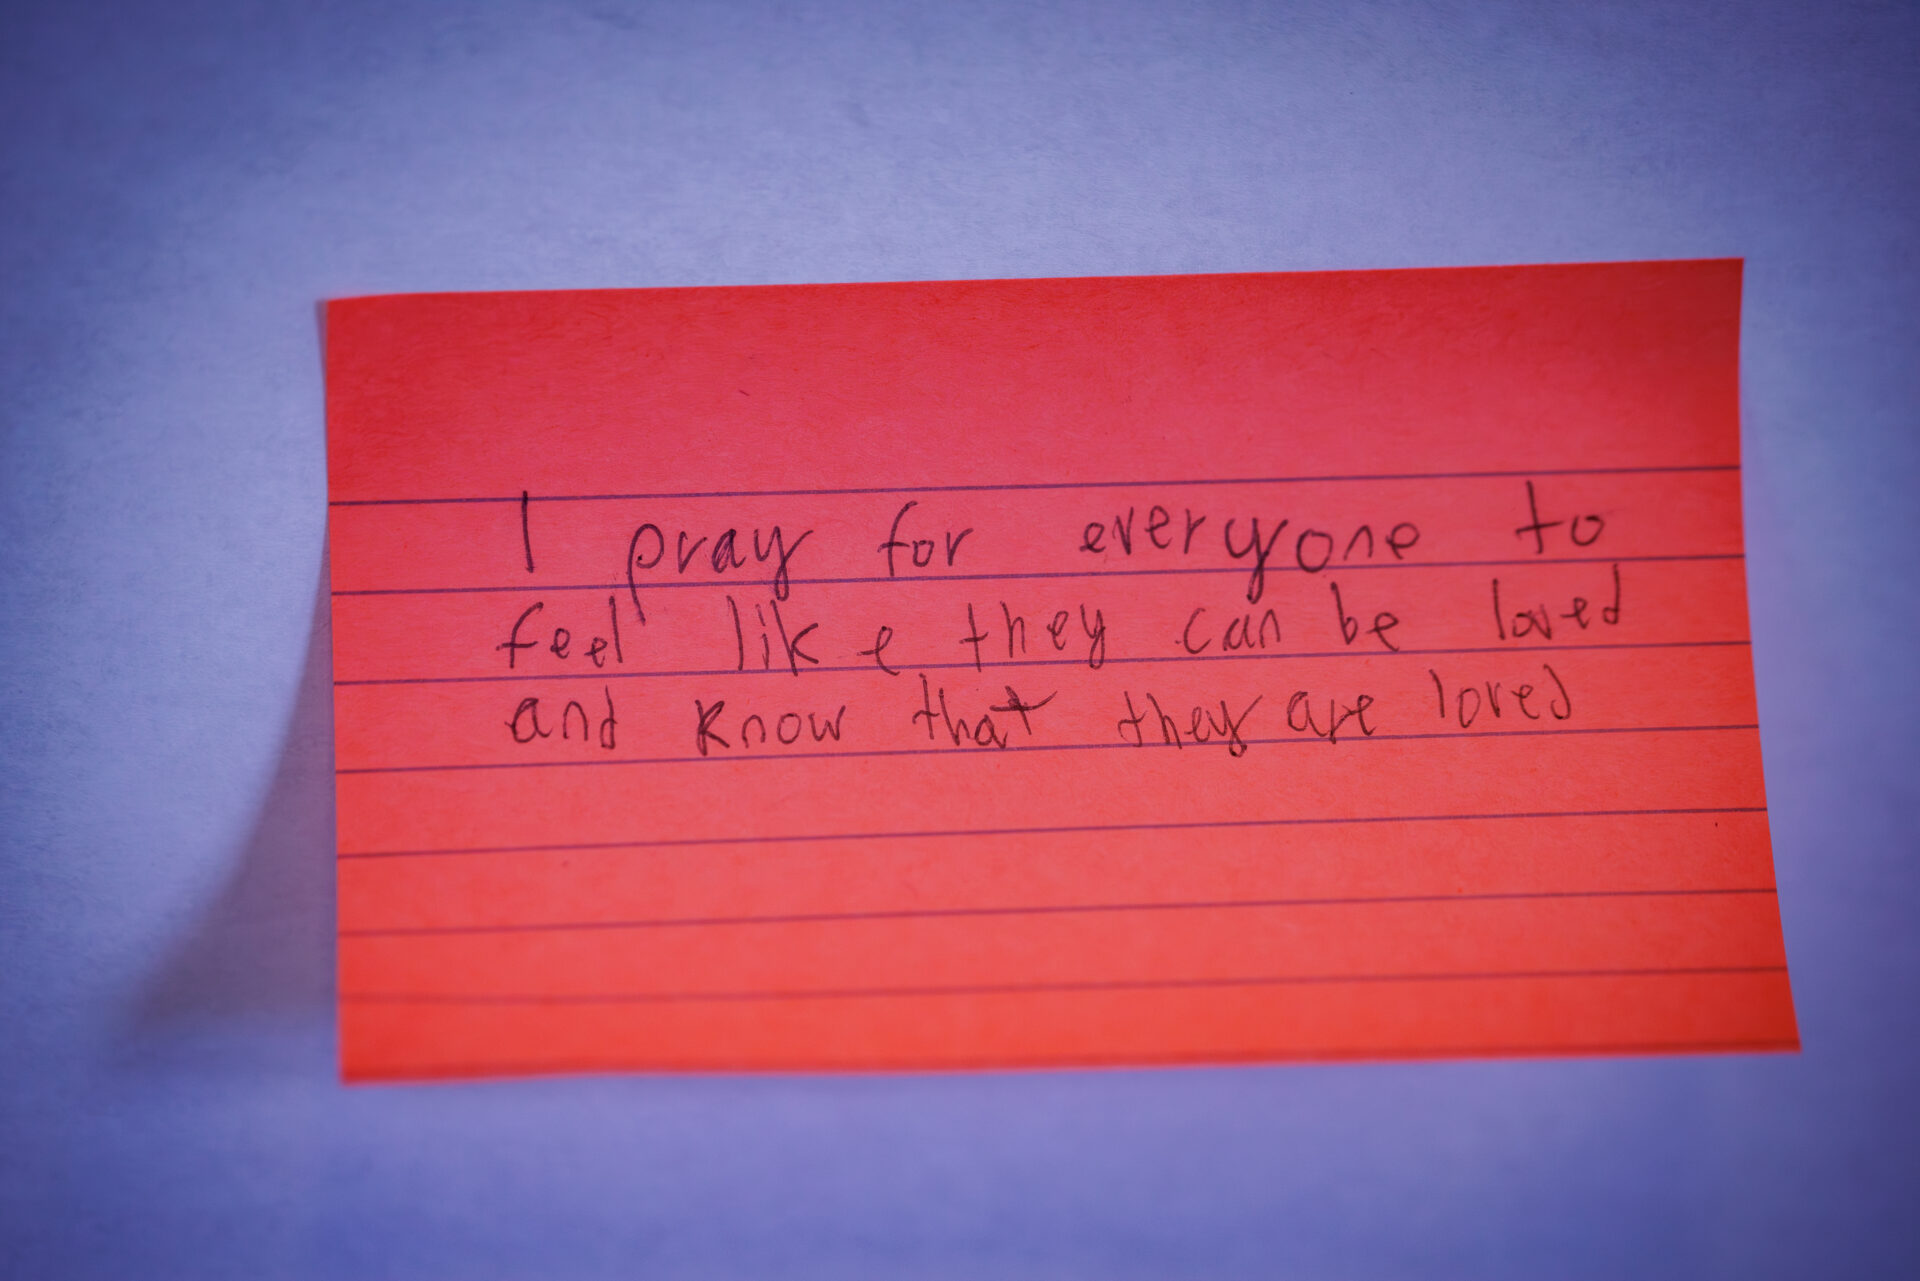 I pray for everyone to
feel like they can be loved
and know that they are loved